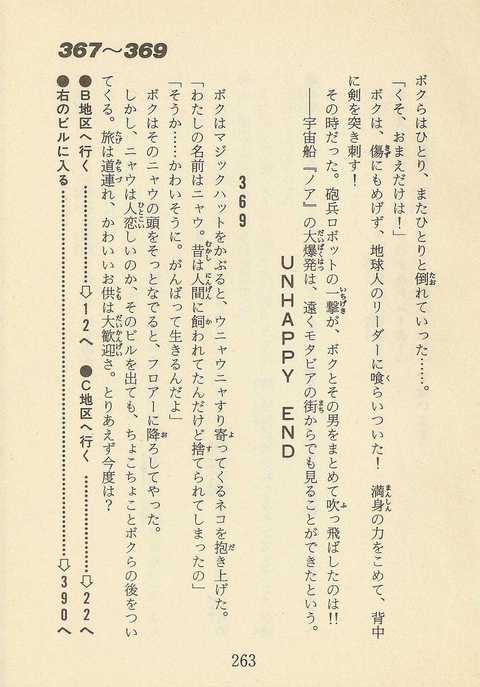 367〜369
ボクらはひとり、またひとりと倒れていった……。
「くそ、おまえだけは!」
ボクは、傷にもめげず、地球人のリーダーに喰らいついた! 満身の力をこめて、背中
に剣を突き刺す!
その時だった。砲兵ロボットの一撃が、ボクとその男をまとめて吹っ飛ばしたのは!!
──宇宙船『ノア』の大爆発は、遠くモタビアの街からでも見ることができたという。
UNHAPPY END
369
ボクはマジックハットをかぶると、ウニャウニャすり寄ってくるネコを抱き上げた。
「わたしの名前はニャウ。昔は人間に飼われてたんだけど捨てられてしまったの」
「そうか……かわいそうに。がんばって生きるんだよ」
ボクはそのニャウの頭をそっとなでると、フロアーに降ろしてやった。
しかし、ニャウは人恋しいのか、そのビルを出ても、ちょこちょことボクらの後をつい
てくる。旅は道連れ、かわいいお供は大歓迎さ。とりあえず今度は?
●B地区へ行く……………⇨12へ ●C地区へ行く……………⇨22へ
●右のビルに入る……………………………………………⇨390へ
263